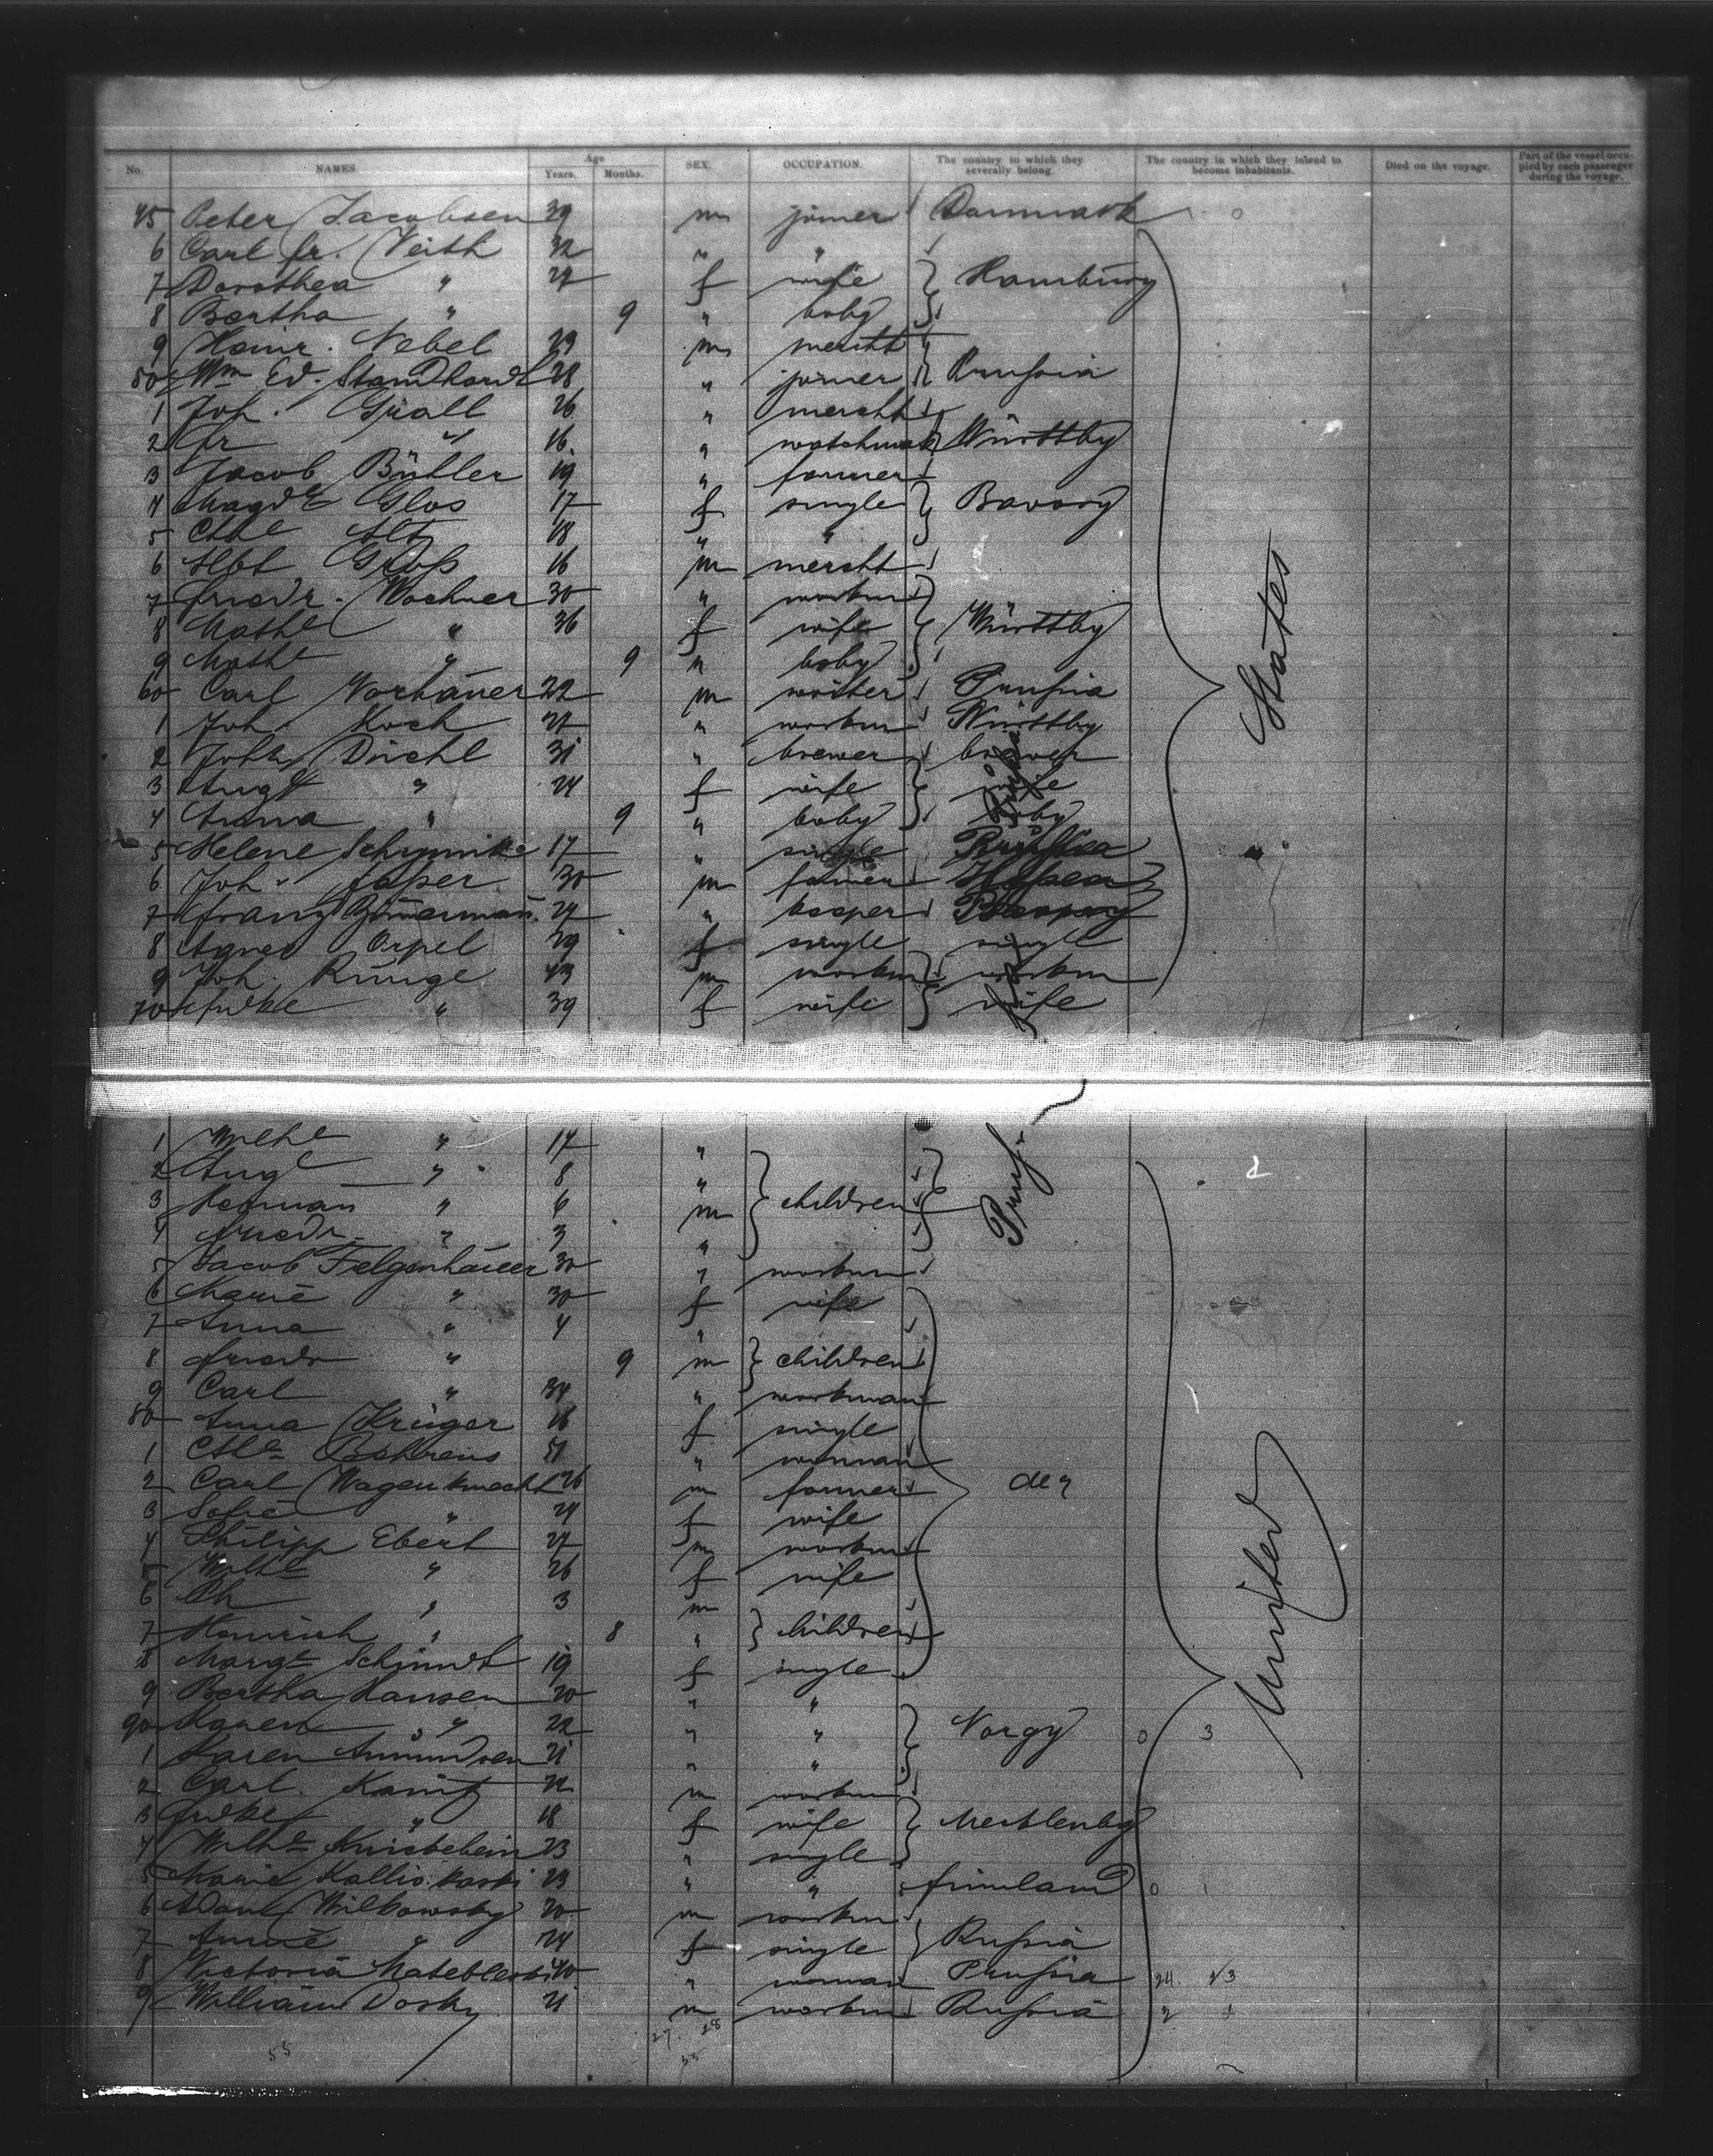 No. NAMES. Age Years. Months. SEX. OCCUPATION. The country to which they severally belong. The country in which they intend to become inhabitants. Died on the voyage. Part of the vessel occupied by each passenger during the voyage.
45 Peter Jacobsen 39 m joiner Danmark 0
6 Carl fr. Veith 32 " "
7 Dorothea " 27 f wife Hamburg
8 Bertha " 9 " baby
9 Heinr. Nebel 29 m mercht
50 Wm Ed. Standhardt 28 " joiner Prussia
1 Joh. Grall 26 " mercht
2 fr " 16 " watchmak Württby
3 Jacob Bühler 19 " farmer
4 Magde Glos 17 f single Bavary
5 Cthe Alt 18 " "
6 Albt Gross 16 m mercht
7 friedr. Wochner 30 " workm
8 Mathe " 36 f wife Württby
9 Mathe " 9 " baby
60 Carl Vorhauer 22 m waiter Prussia
1 Joh. Koch 27 " workm Württby
2 Johs Diehl 31 " brewer brewer
3 Augte " 24 f wife wife
4 Anna " 9 " baby baby
5 Helene 17 " single
6 Joh. 30 m farmer
7 franz 27 " cooper
8 Agnes Orpel 29 f single single
9 Joh. Runge 43 m workm workm
70 fridke " 39 f wife wife
States
1 Wilhe " 17 "
2 Augte " 8 "
3 Herman " 6 m children Pruss.
4 friedr. " 3 "
5 Jacob Felgenhauer 30 " workm
6 Marie " 30 f wife
7 Anna " 4 "
8 friedr " 9 m children
9 Carl " 34 " workman
80 Anna Krüger 16 f single
1 Cthe Behrens 51 " woman
2 Carl Wagenknecht 26 m farmer
3 Sofie " 24 f wife
4 Philipp Ebert 27 m workm
5 Wilhe " 26 f wife
6 Ch " 3 m
7 Heinrich " 8 " children
8 Margte Schmidt 19 f single
9 Bertha Hansen 20 " "
90 Karen " 22 " " Norgy 0 3
1 Karen Amundsen 21 " "
2 Carl Kanitz 22 m workm
3 fridke " 18 f wife Mecklenbg
4 Wilhe 23 " single
5 Marie Kallio 23 " " finnland 0 1
6 Adam Wilkowsky 20 m workm
7 Annie " 24 f single Russia
8 Victoria 40 " woman Prussia 24
9 William Dosky 21 m workm Russia 2
United
55 27 28
55